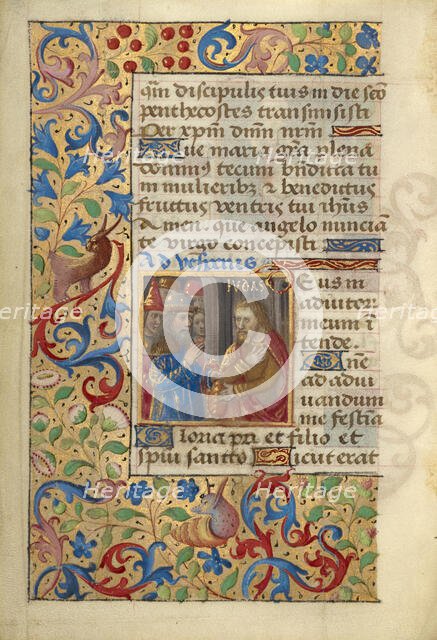 qm discipulis tuis in die sco
penthecostes transmisisti
Per xpm dnm nrm
Aue maria gra plena
dominus tecum bndicta tu
in mulieribz & benedictus
fructus ventris tui ihus
Amen. que angelo nuncian
te virgo concepisti
Ad vesperas
IVDAS
Deus in
adiutori
meum in
tende.
Dne
ad adiu
uandum
me festina
Gloria pri et filio et
spiu sancto Sicut erat
Heritage
Images